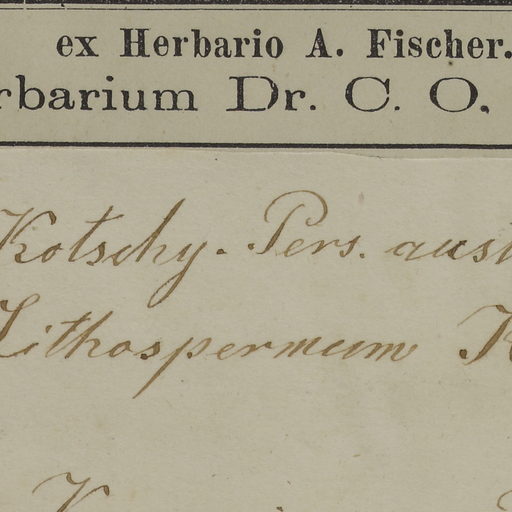 ex Herbario A. Fischer.
rbarium Dr. C. O.
Kotschy. Pers. aust
Lithospermum K